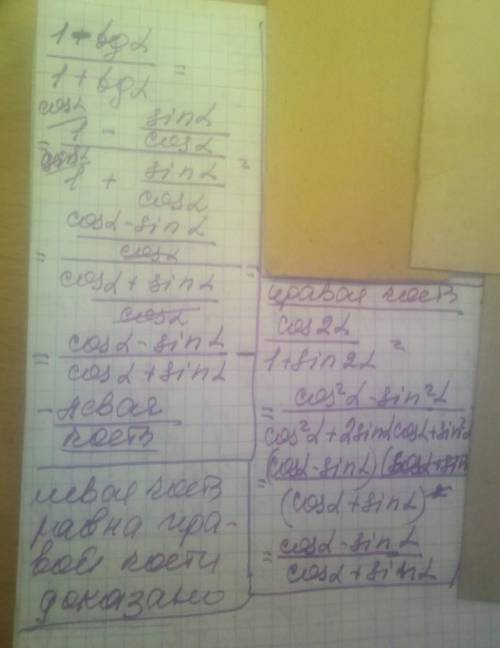 1 - tgα
1 + tgα =
cosα
= 1 - sinα
cosα =
1 + sinα
cosα
cosα - sinα
cosα
= =
cosα + sinα
cosα
= cosα - sinα -
cosα + sinα
- левая
часть
левая часть
равна пра-
вой части
доказано
правая часть
cos2α
1 + sin2α =
= cos²α - sin²α
cos²α + 2sinα cosα + sin²α
= (cosα - sinα)(cosα + sin
(cosα + sinα)
= cosα - sinα
cosα + sinα